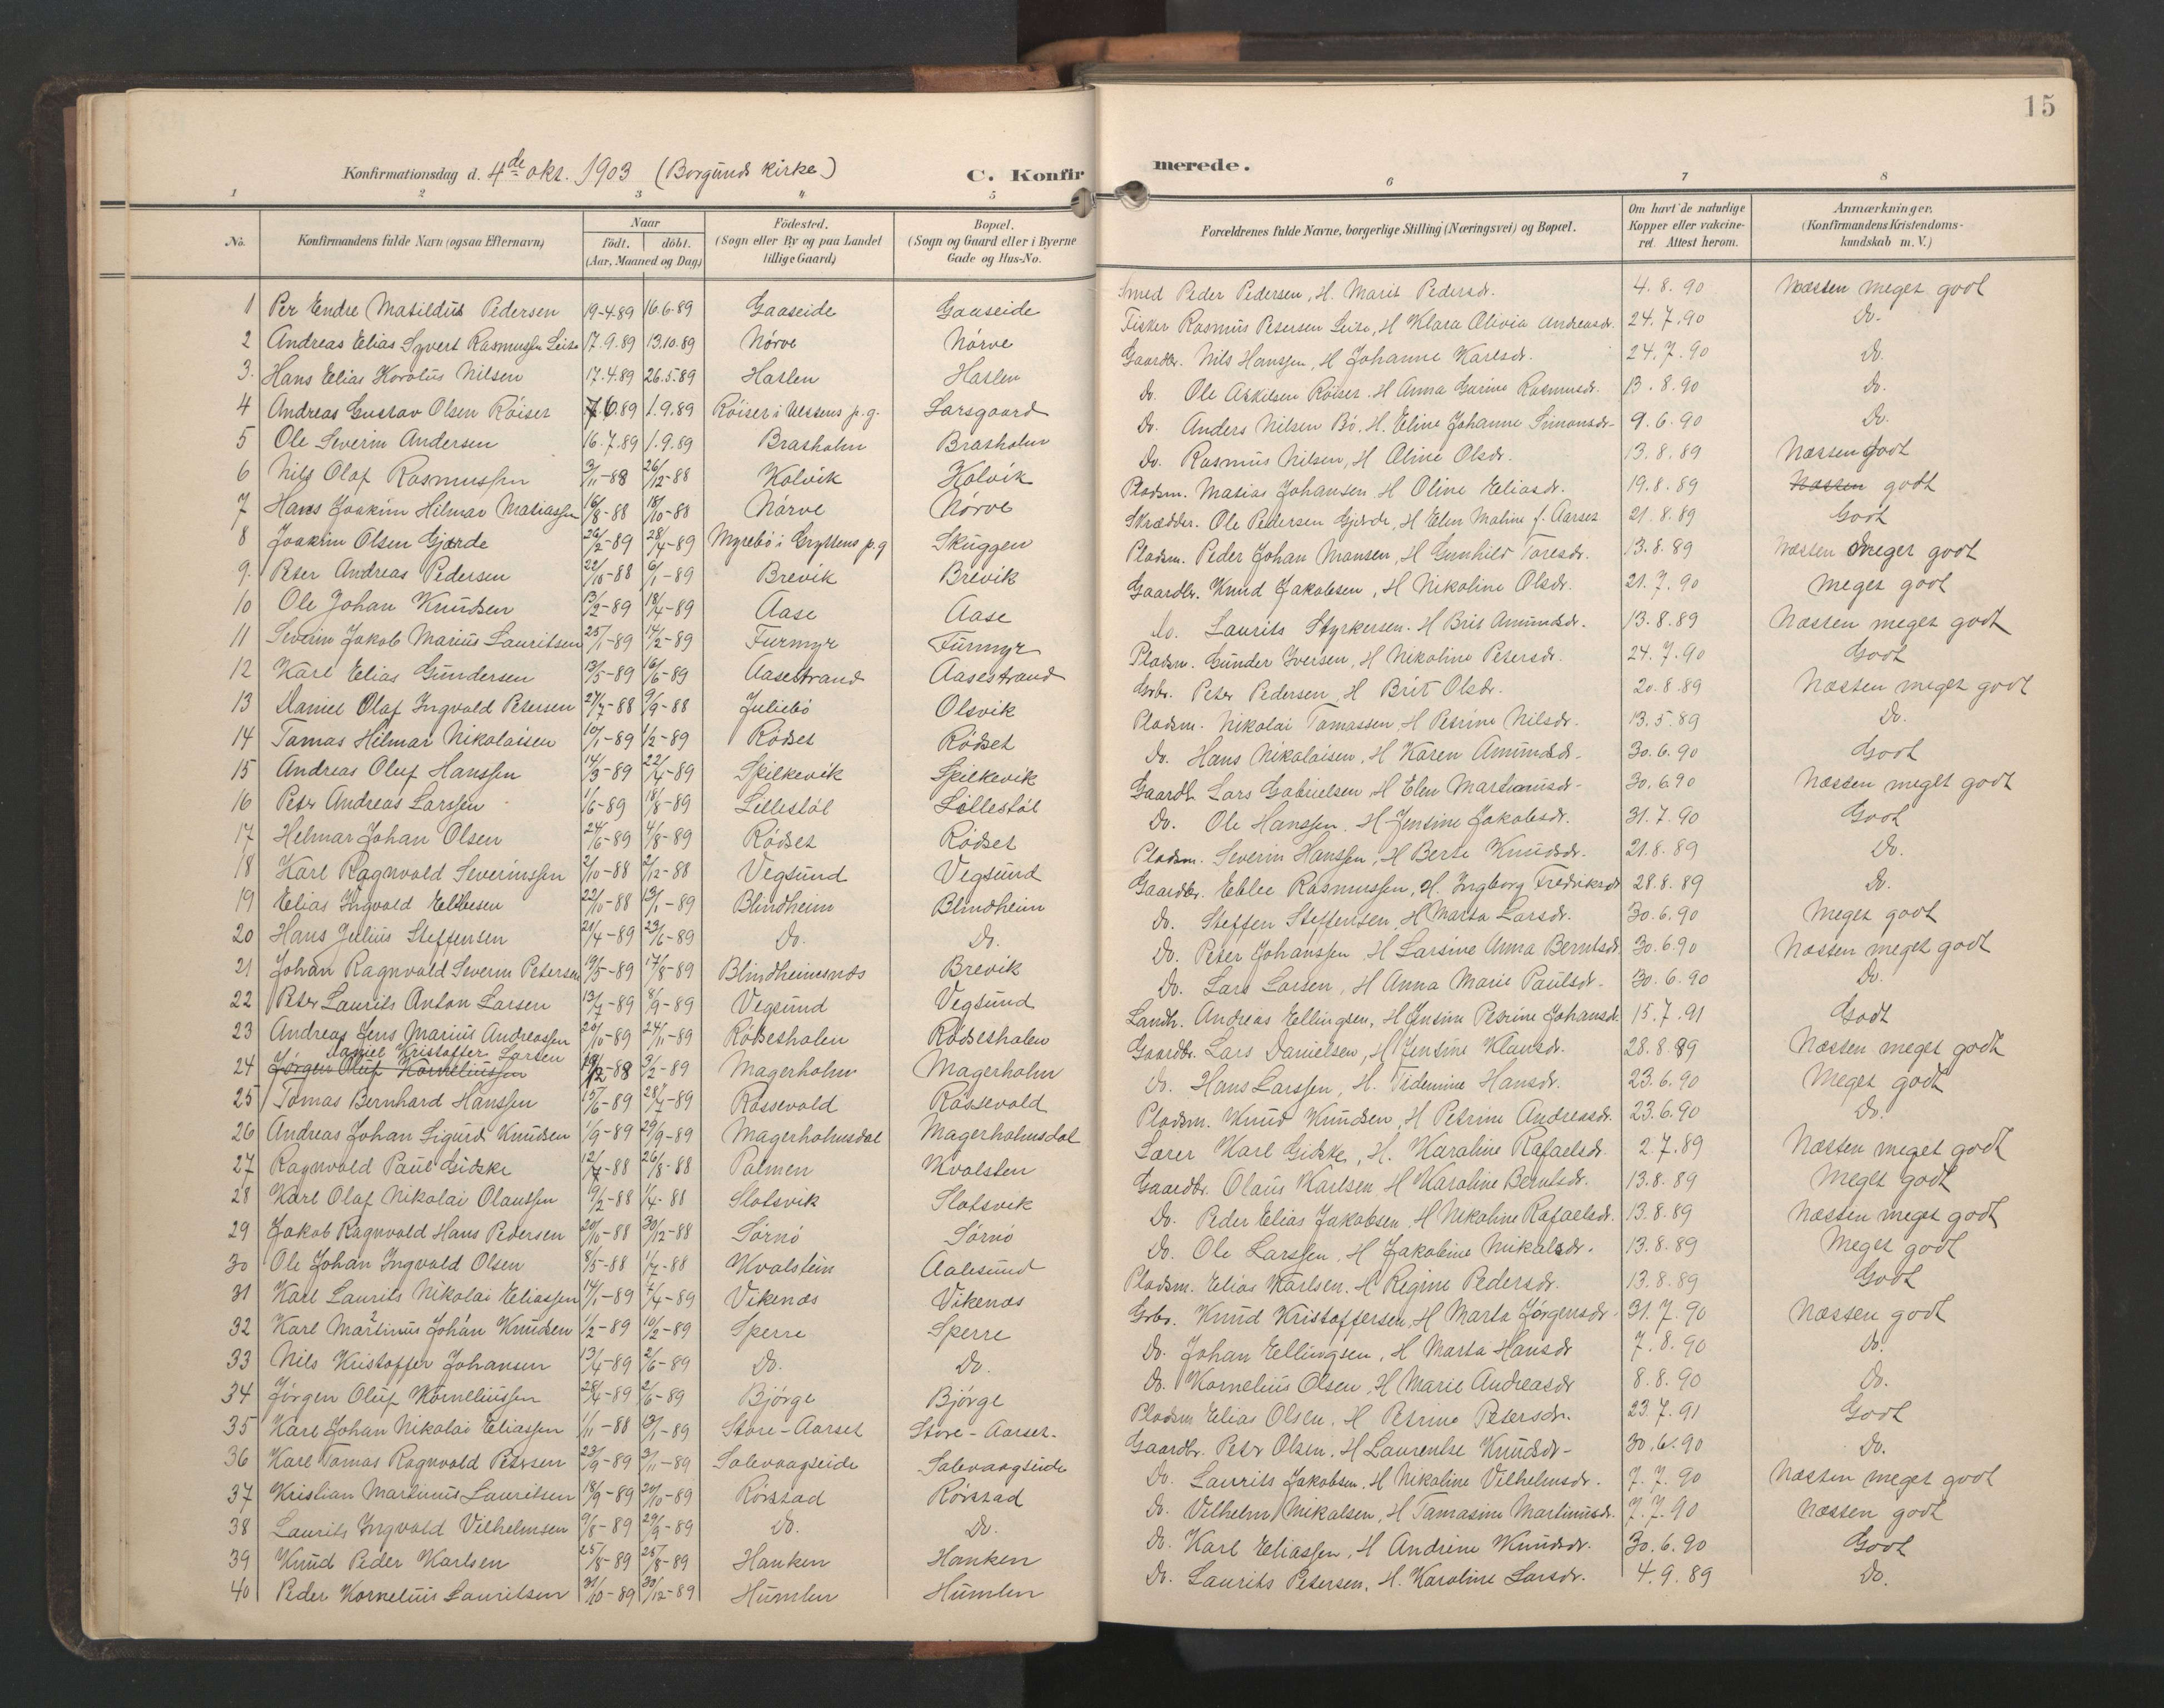 15
Konfirmationsdag d. 4de okt. 1903 (Borgund kirke)
C. Konfirmerede.
1 2 3 4 5 6 7 8
No. | Konfirmandens fulde Navn (ogsaa Efternavn) | Naar födt. | döbt. (Aar, Maaned og Dag) | Födested. (Sogn eller By og paa Landet tillige Gaard) | Bopæl. (Sogn og Gaard eller i Byerne Gade og Hus-No. | Forældrenes fulde Navne, borgerlige Stilling (Næringsvei) og Bopæl. | Om havt de naturlige Kopper eller vakcineret. Attest herom. | Anmærkninger. (Konfirmandens Kristendomskundskab m. V.)
1 Per Endre Matildus Pedersen 19-4.89 16.6.89 Gaaseide Gaaseide Smed Peder Pedersen, H. Marit Pedersdr. 4.8.90 Næsten meget godt
2 Andreas Elias Syvert Rasmussen Leite 17.9.89 13.10.89 Nørve Nørve Fisker Rasmus Petersen Leite, H Klara Olivia Andreasdr. 24.7.90 Do.
3. Hans Elias Karolus Nilsen 17.4.89 26.5.89 Hatlen Hatlen Gaardbr. Nils Hanssen, H Johanne Karlsdr. 24.7.90 Do.
4 Andreas Gustav Olsen Røiser 7.6.89 1.9.89 Røiser i Ulstens p.g. Larsgaard Do. Ole Askilsen Røiser. H Anna Gurine Rasmusdr. 13.8.90 Do.
5 Ole Severin Andersen 16.7.89 1.9.89 Brasholm Brasholm Do. Anders Nilsen Bö, H. Eline Johanne Simonsdr. 9.6.90 Do.
6 Nils Olaf Rasmussen 3/11-88 26/12-88 Kolvik Kolvik Do. Rasmus Nilsen, H Oline Olsdr. 13.8.89 Næsten godt
7 Hans Joakim Hilmar Matiassen 16/8-88 18/10-88 Nørve Nørve Pladsm. Matias Johansen H Oline Eliasdr. 19.8.89 Næsten godt
8 Joakim Olsen Gjærde 26/2-89 28/4-89 Myrebö i Gryttens p.g Skuggen Skrædder. Ole Pedersen Gjærde, H Elen Maline f. Aarset 21.8.89 Godt
9. Peter Andreas Pedersen 22/10-88 6/1-89 Brevik Brevik Pladsm. Peder Johan Monsen, H Gunhild Toresdr. 13.8.89 Næsten meget godt
10 Ole Johan Knudsen 13/2-89 18/4-89 Aase Aase Gaardbr. Knud Jakobsen, H Nikoline Olsdr. 21.7.90 Meget godt
11 Severin Jakob Marius Lauritsen 25/1-89 14/2-89 Furmyr Furmyr Do. Laurits Styrkersen. H Brit Amundsdr. 13.8.89 Næsten meget godt
12 Karl Elias Gundersen 13/5-89 16/6-89 Aasestrand Aasestrand Pladsm. Gunder Iversen, H Nikoline Petersdr. 24.7.90 Godt
13 Daniel Olaf Ingvald Petersen 27/7-88 9/9-88 Juliebö Olsvik Grbr. Peter Pedersen H Brit Olsdr. 20.8.89 Næsten meget godt
14 Tomas Hilmar Nikolaisen 10/1-89 1/2-89 Rødset Rødset Pladsm. Nikolai Tomassen H Petrine Nilsdr. 13.5.89 Do.
15 Andreas Oluf Hanssen 14/3-89 22/4-89 Spilkevik Spilkevik Do. Hans Nikolaisen, H Karen Amundsdr. 30.6.90 Godt
16 Peter Andreas Larssen 1/6-89 18/8-89 Lillestøl Lillestøl Gaardb. Lars Gabrielsen H Elen Martianusdr. 30.6.90 Næsten meget godt
17 Helmar Johan Olsen 24/6-89 4/8-89 Rødset Rødset Do. Ole Hanssen. H Jensine Jakobsdr. 31.7.90 Godt
18 Karl Ragnvald Severinssen 2/10-88 2/12-88 Vegsund Vegsund Pladsm. Severin Hanssen, H Berte Knudsdr. 21.8.89 Do.
19 Elias Ingvald Ebbesen 22/10-88 13/1-89 Blindheim Blindheim Gaardbr. Ebbe Rasmussen, H. Ingborg Fredriksdr 28.8.89 Do.
20 Hans Julius Steffensen 20/4-89 23/6-89 Do. Do. Do. Steffen Steffensen, H Marta Larsdr. 30.6.90 Meget godt
21 Johan Ragnvald Severin Petersen 19/5-89 17/8-89 Blindheimsnæs Brevik Do. Peter Johanssen, H Larsine Anna Berntsdr. 30.6.90 Næsten meget godt
22 Peter Laurits Anton Larsen 13/7-89 8/9-89 Vegsund Vegsund Do. Lars Larsen, H Anna Marie Paulsdr. 30.6.90 Do.
23 Andreas Jens Marius Andreassen 20/10-89 24/11-89 Rødsetholen Rødsetholen Landh. Andreas Ellingsen, H Jensine Petrine Johansdr. 15.7.91 Godt
Daniel Kristoffer Larsen
24 Jørgen Oluf Kornelinssen 19/12-88 3/2-89 Magerholm Magerholm Gaardbr. Lars Danielsen, H Jensine Klausdr. 28.8.89 Næsten meget godt
25 Tomas Bernhard Hanssen 15/6-89 28/7-89 Røssevold Røssevold Do. Hans Larssen, H. Videmine Hansdr. 23.6.90 Meget godt
26 Andreas Johan Sigurd Knudsen 1/9-89 29/9-89 Magerholmsdal Magerholmsdal Pladsm. Knud Knudsen, H Petrine Andreasdr. 23.6.90 Do.
27 Ragnvald Paul Gidske 12/7-88 26/8-88 Palmen Kvalsten Lærer Karl Gidske, H. Karoline Rafaelsdr. 2.7.89 Næsten meget godt
28 Karl Olaf Nikolai Olaussen 19/2-88 1/4-88 Slotsvik Slotsvik Gaardbr. Olaus Karlsen H Karoline Berntsdr. 13.8.89 Meget godt
29 Jakob Ragnvald Hans Pedersen 20/10-88 30/12-88 Sørnö Sørnö Do. Peder Elias Jakobsen H Nikoline Rafaelsdr. 13.8.89 Næsten meget godt
30 Ole Johan Ingvald Olsen 8/5-88 1/7-88 Kvalstein Aalesund Do. Ole Larssen, H Jakobine Mikalsdr. 13.8.89 Meget godt
31 Karl Laurits Nikolai Eliassen 14/1-89 7/4-89 Vikenæs Vikenæs Pladsm. Elias Karlsen. H Regine Pedersdr. 13.8.89 Godt
32 Karl Martinus Johan Knudsen 1/2-89 10/2-89 Sperre Sperre Grbr. Knud Kristoffersen, H Marta Jørgensdr. 31.7.90 Næsten godt
33 Nils Kristoffer Johansen 13/4-89 2/6-89 Do. Do. Do. Johan Ellingsen, H Marta Hansdr 7.8.90 Do.
34 Jørgen Oluf Kornelinssen 28/4-89 2/6-89 Bjørge Bjørge Do. Kornelius Olsen, H Marie Andreasdr 8.8.90 Do.
35 Karl Johan Nikolai Eliassen 1/11-88 13/1-89 Store-Aarset Store-Aarset. Pladsm Elias Olsen, H Petrine Petersdr. 23.7.91 Godt
36 Karl Tomas Ragnvald Petersen 23/9-89 3/11-89 Salevaagseide Salevaagseide Gaardbr. Peter Olsen. H Laurentse Knudsdr. 30.6.90 Do.
37 Kristian Martinus Lauritsen 18/9-89 20/10-89 Rørstad Rørstad Do. Laurits Jakobsen. H Nikoline Vilhelmsdr. 7.7.90 Næsten meget godt
38 Laurits Ingvald Vilhelmsen 9/8-89 29/9-89 Do. Do. Do. Vilhelm Mikalsen, H Tamasine Martinusdr. 7.7.90 Næsten godt
39 Knud Peder Karlsen 25/8-89 25/8-89 Hanken Hanken Do. Karl Eliassen, H Andrine Knudsdr. 30.6.90 Godt
40 Peder Kornelius Lauritsen 31/10-89 30/12-89 Humlen Humlen Do. Laurits Petersen, H. Karoline Larsdr. 4.9.89 Do.